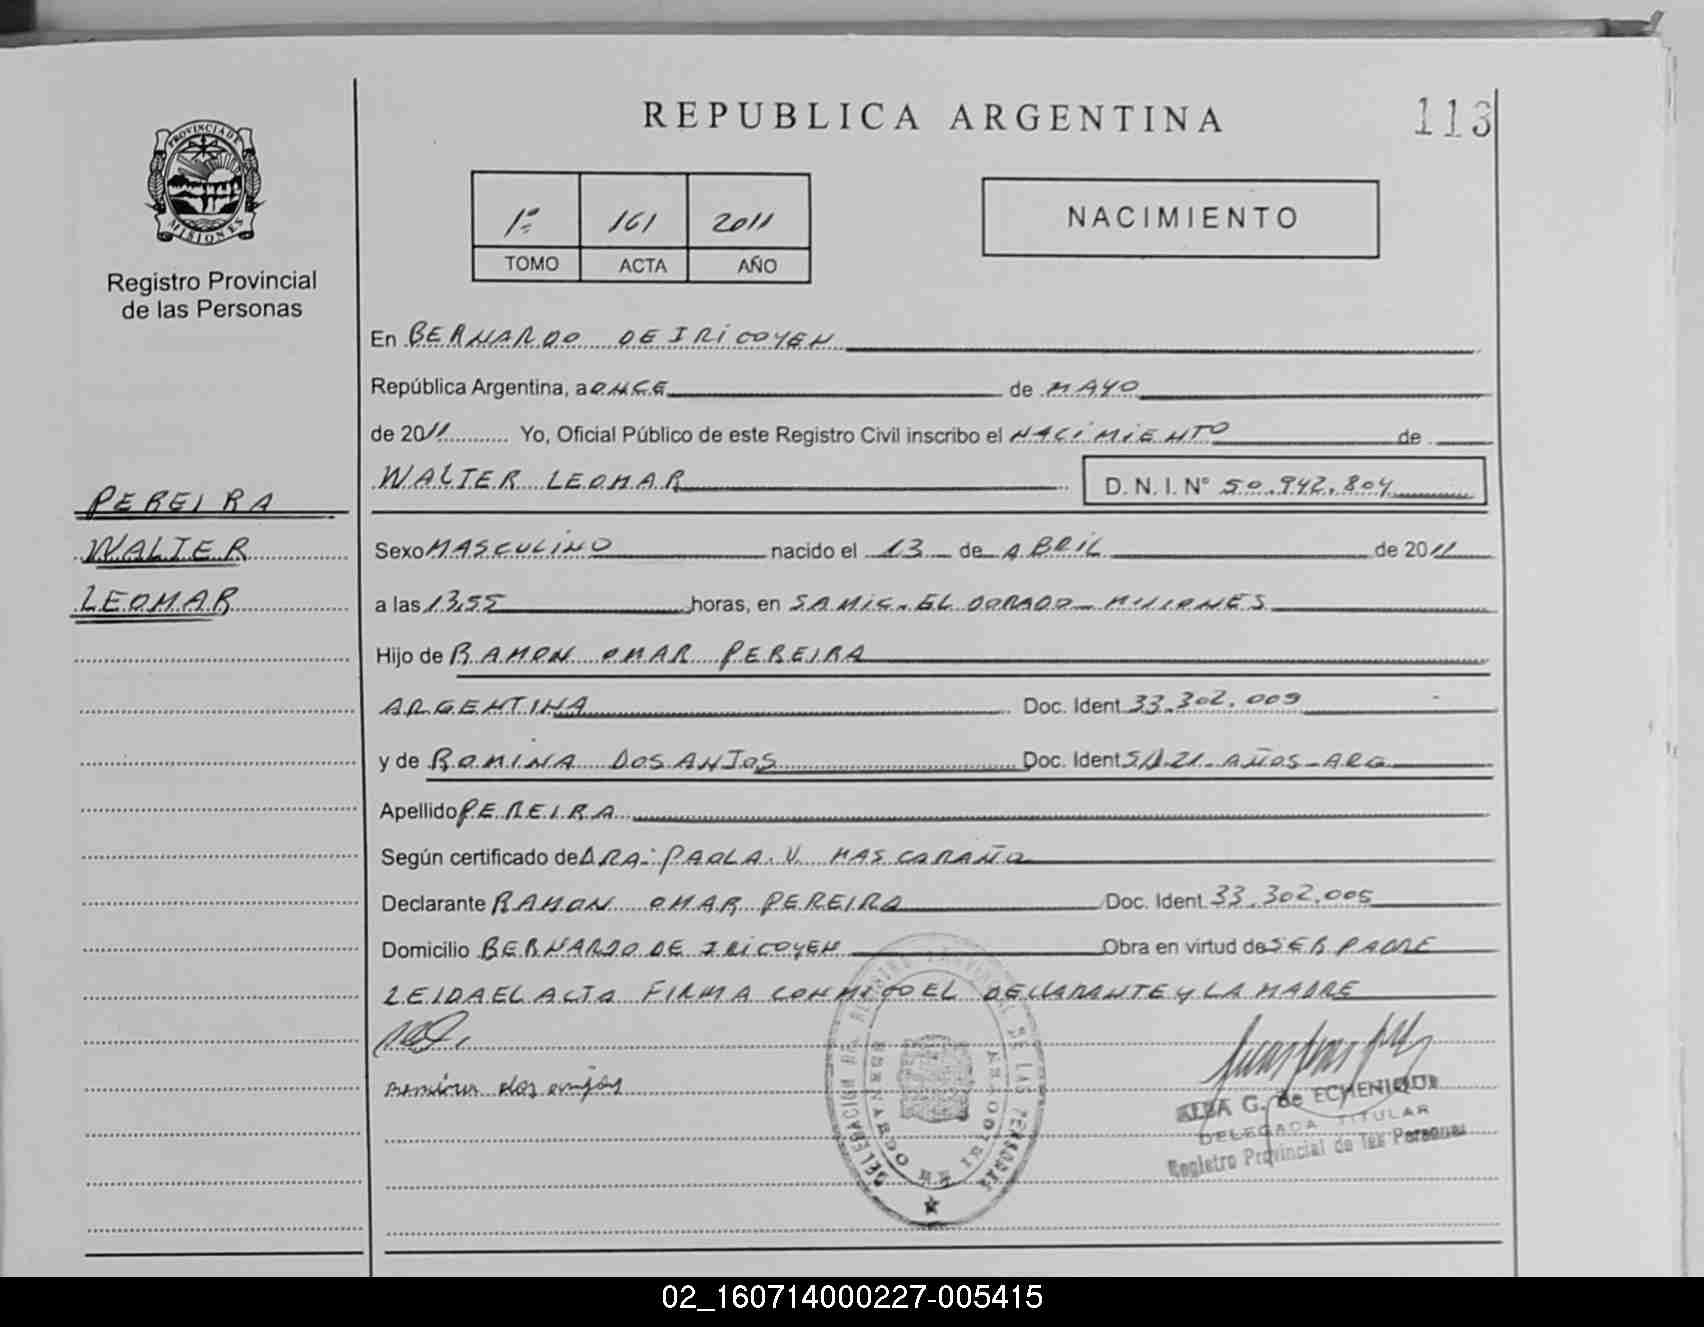 REPUBLICA ARGENTINA
113
PROVINCIA DE
MISIONES
Registro Provincial
de las Personas
1º 161 2011
TOMO ACTA AÑO
NACIMIENTO
En BERNARDO DE IRIGOYEN
República Argentina, a ONCE de MAYO
de 2011 Yo, Oficial Público de este Registro Civil inscribo el NACIMIENTO de
WALTER LEOMAR D. N. I. Nº 50.942.804
PEREIRA
WALTER
LEOMAR
Sexo MASCULINO nacido el 13 de ABRIL de 2011
a las 13,55 horas, en SAMIC. EL DORADO MISIONES
Hijo de RAMON OMAR PEREIRA
ARGENTINA Doc. Ident 33.302.009
y de ROMINA DOS ANJOS Doc. Ident S/D 21 AÑOS-ARG
Apellido PEREIRA
Según certificado de DRA. PAOLA V. MASCARAÑO
Declarante RAMON OMAR PEREIRA Doc. Ident 33.302.005
Domicilio BERNARDO DE IRIGOYEN Obra en virtud de SER PADRE
LEIDA EL ACTA FIRMA CONMIGO EL DECLARANTE y LA MADRE
romina dos anjos
DELEGACION DE REGISTRO PROVINCIAL DE LAS PERSONAS
BERNARDO DE IRIGOYEN
ALBA G. de ECHENIQUE
DELEGADA TITULAR
Registro Provincial de las Personas
02_160714000227-005415